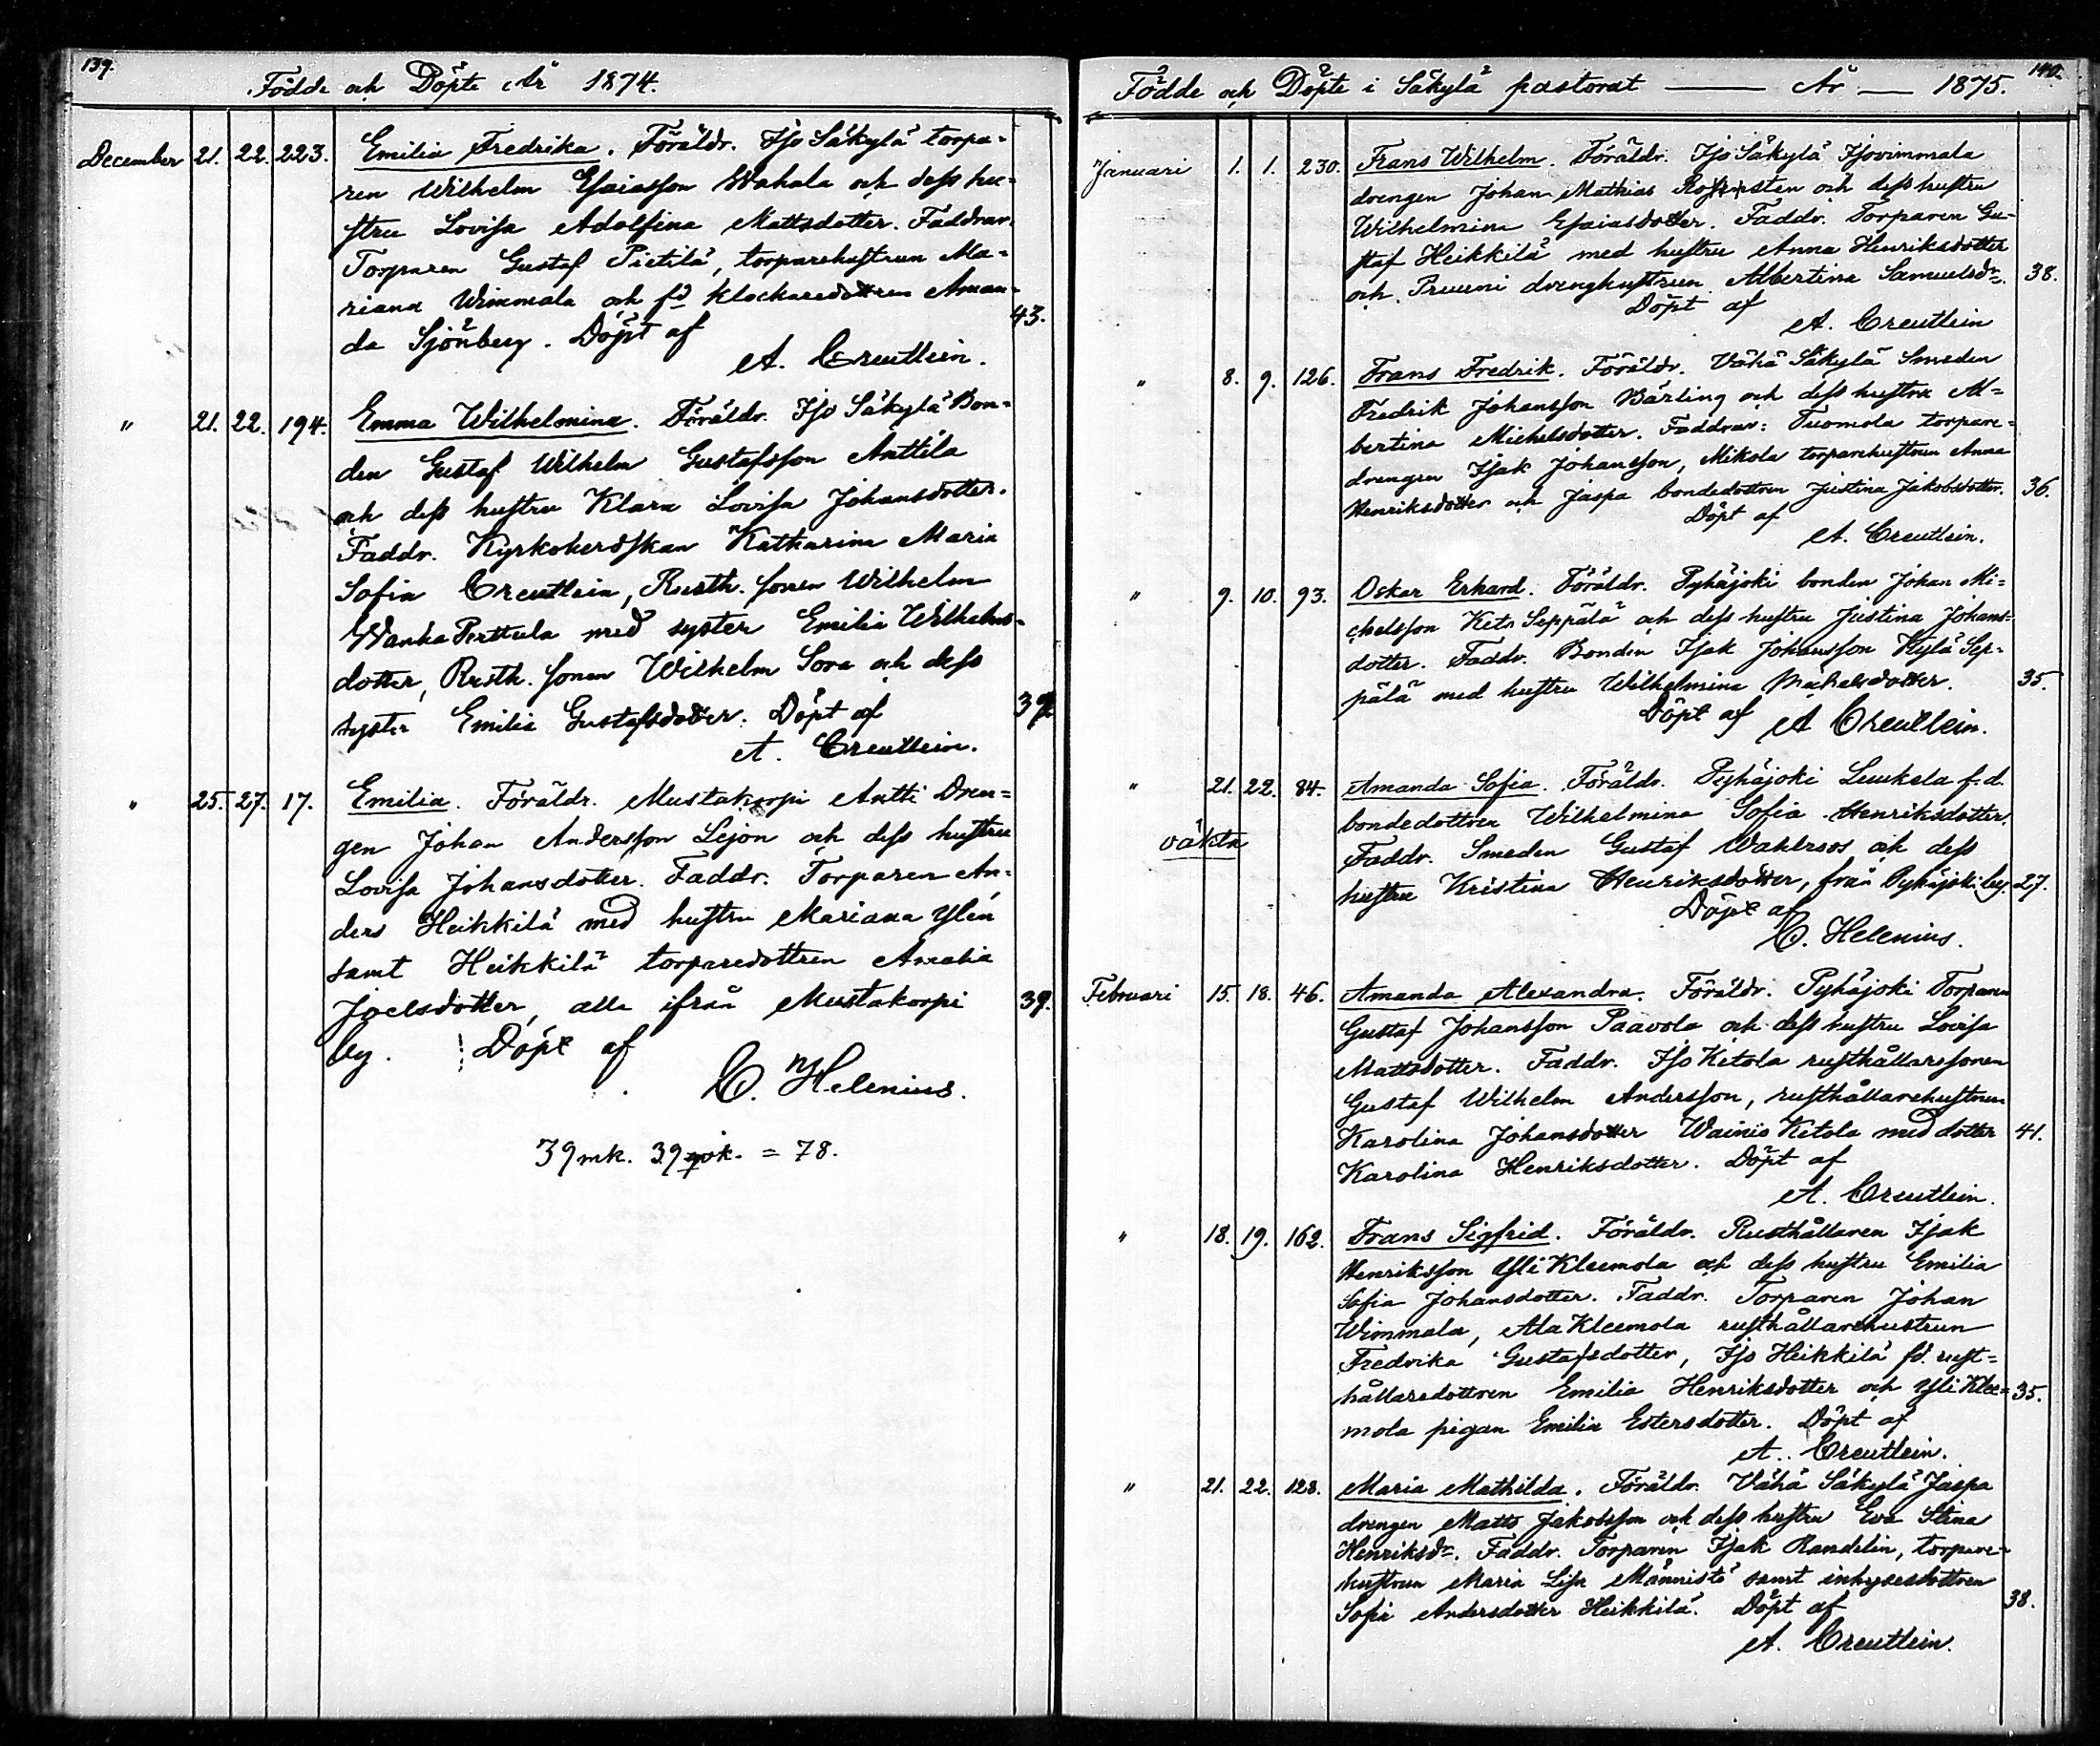 139.
Födde och Döpte År 1874.
December 21. 22. 223. Emilia Fredrika. Föräldr. Iso Säkylä torpa=
ren Wilhelm Esaiasson Wahala och dess hu=
stru Lovisa Adolfina Mattsdotter. Faddrar.
Torparen Gustaf Pietilä, torparehustrun Ma=
riana Wimmala och fd klockaredottren Aman=
da Sjönberg. Döpt af 43.
A. Creutlein.
" 21. 22. 194. Emma Wilhelmina. Föräldr. Iso Säkylä Bon=
den Gustaf Wilhelm Gustafsson Anttila
och dess hustru Klara Lovisa Johansdotter.
Faddr. Kyrkoherdskan Katharina Maria
Sofia Creutlein, Rusth. sonen Wilhelm
Wanha Perttula med syster Emilia Wilhelms=
dotter, Rusth. sonen Wilhelm Sora och dess
syster Emilia Gustafsdotter. Döpt af 39.
A. Creutlein.
" 25. 27. 17. Emilia. Föräldr. Mustakorpi Antti Dren=
gen Johan Andersson Lejon och dess hustru
Lovisa Johansdotter. Faddr. Torparen An=
ders Heikkilä med hustru Mariana Ylén
samt Heikkilä torparedottren Amalia
Joelsdotter, alla ifrån Mustakorpi 39.
by. Döpt af
C. Helenius.
39 mk. 39 qvk. = 78.
140.
Födde och Döpte i Säkylä pastorat — År — 1875.
Januari 1. 1. 230. Frans Wilhelm. Föräldr. Iso Säkylä Isovimmala
drengen Johan Mathias och dess hustru
Wilhelmina Esaiasdotter. Faddr. Torparen Gu=
staf Heikkilä med hustru Anna Henriksdotter
och Pruuni drenghustrun Albertina Samuelsdr. 38.
Döpt af
A. Creutlein
" 8. 9. 126. Frans Fredrik. Föräldr. Vähä Säkylä Smeden
Fredrik Johansson Bärling och dess hustru Al=
bertina Michelsdotter. Faddrar: Tuomola torpare=
drengen Isak Johansson, Mikola torparehustrun Anna
Henriksdotter och Jaspa bondedottren Justina Jakobsdotter. 36.
Döpt af
A. Creutlein.
" 9. 10. 93. Oskar Erhard. Föräldr. Pyhäjoki bonden Johan Mi=
chelsson Keto Seppälä och dess hustru Justina Johans=
dotter. Faddr. Bonden Isak Johansson Kylä Sep=
pälä med hustru Wilhelmina Michelsdotter. 35.
Döpt af A Creutlein.
" 21. 22. 84. Amanda Sofia. Föräldr. Pyhäjoki Leukela f.d.
oäkta bondedottren Wilhelmina Sofia Henriksdotter.
Faddr. Smeden Gustaf Wahlroos och dess
hustru Kristina Henriksdotter, från Pyhäjoki by. 27.
Döpt af
C. Helenius.
Februari 15. 18. 46. Amanda Alexandra. Föräldr. Pyhäjoki Torparen
Gustaf Johansson Paavola och dess hustru Lovisa
Mattsdotter. Faddr. Iso Ketola rusthållaresonen
Gustaf Wilhelm Andersson, rusthållarehustrun
Karolina Johansdotter Wainio Ketola med dotter 41.
Karolina Henriksdotter. Döpt af
A. Creutlein.
" 18. 19. 162. Frans Sigfrid. Föräldr. Rusthållaren Isak
Henriksson Yli Kleemola och dess hustru Emilia
Sofia Johansdotter. Faddr. Torparen Johan
Wimmala, Ala Kleemola rusthållarehustrun
Fredrika Gustafsdotter, Iso Heikkilä fd. rust=
hållaredottren Emilia Henriksdotter och Yli Klee= 35.
mola pigan Emilia Estersdotter. Döpt af
A. Creutlein.
" 21. 22. 128. Maria Mathilda. Föräldr. Vähä Säkylä Jaspa
drengen Matts Jakobsson och dess hustru Eva Stina
Henriksdr. Faddr. Torparen Isak Randelin, torpare=
hustrun Maria Lisa Männistö samt inhysesdottren
Sofia Andersdotter Heikkilä. Döpt af 38.
A. Creutlein.